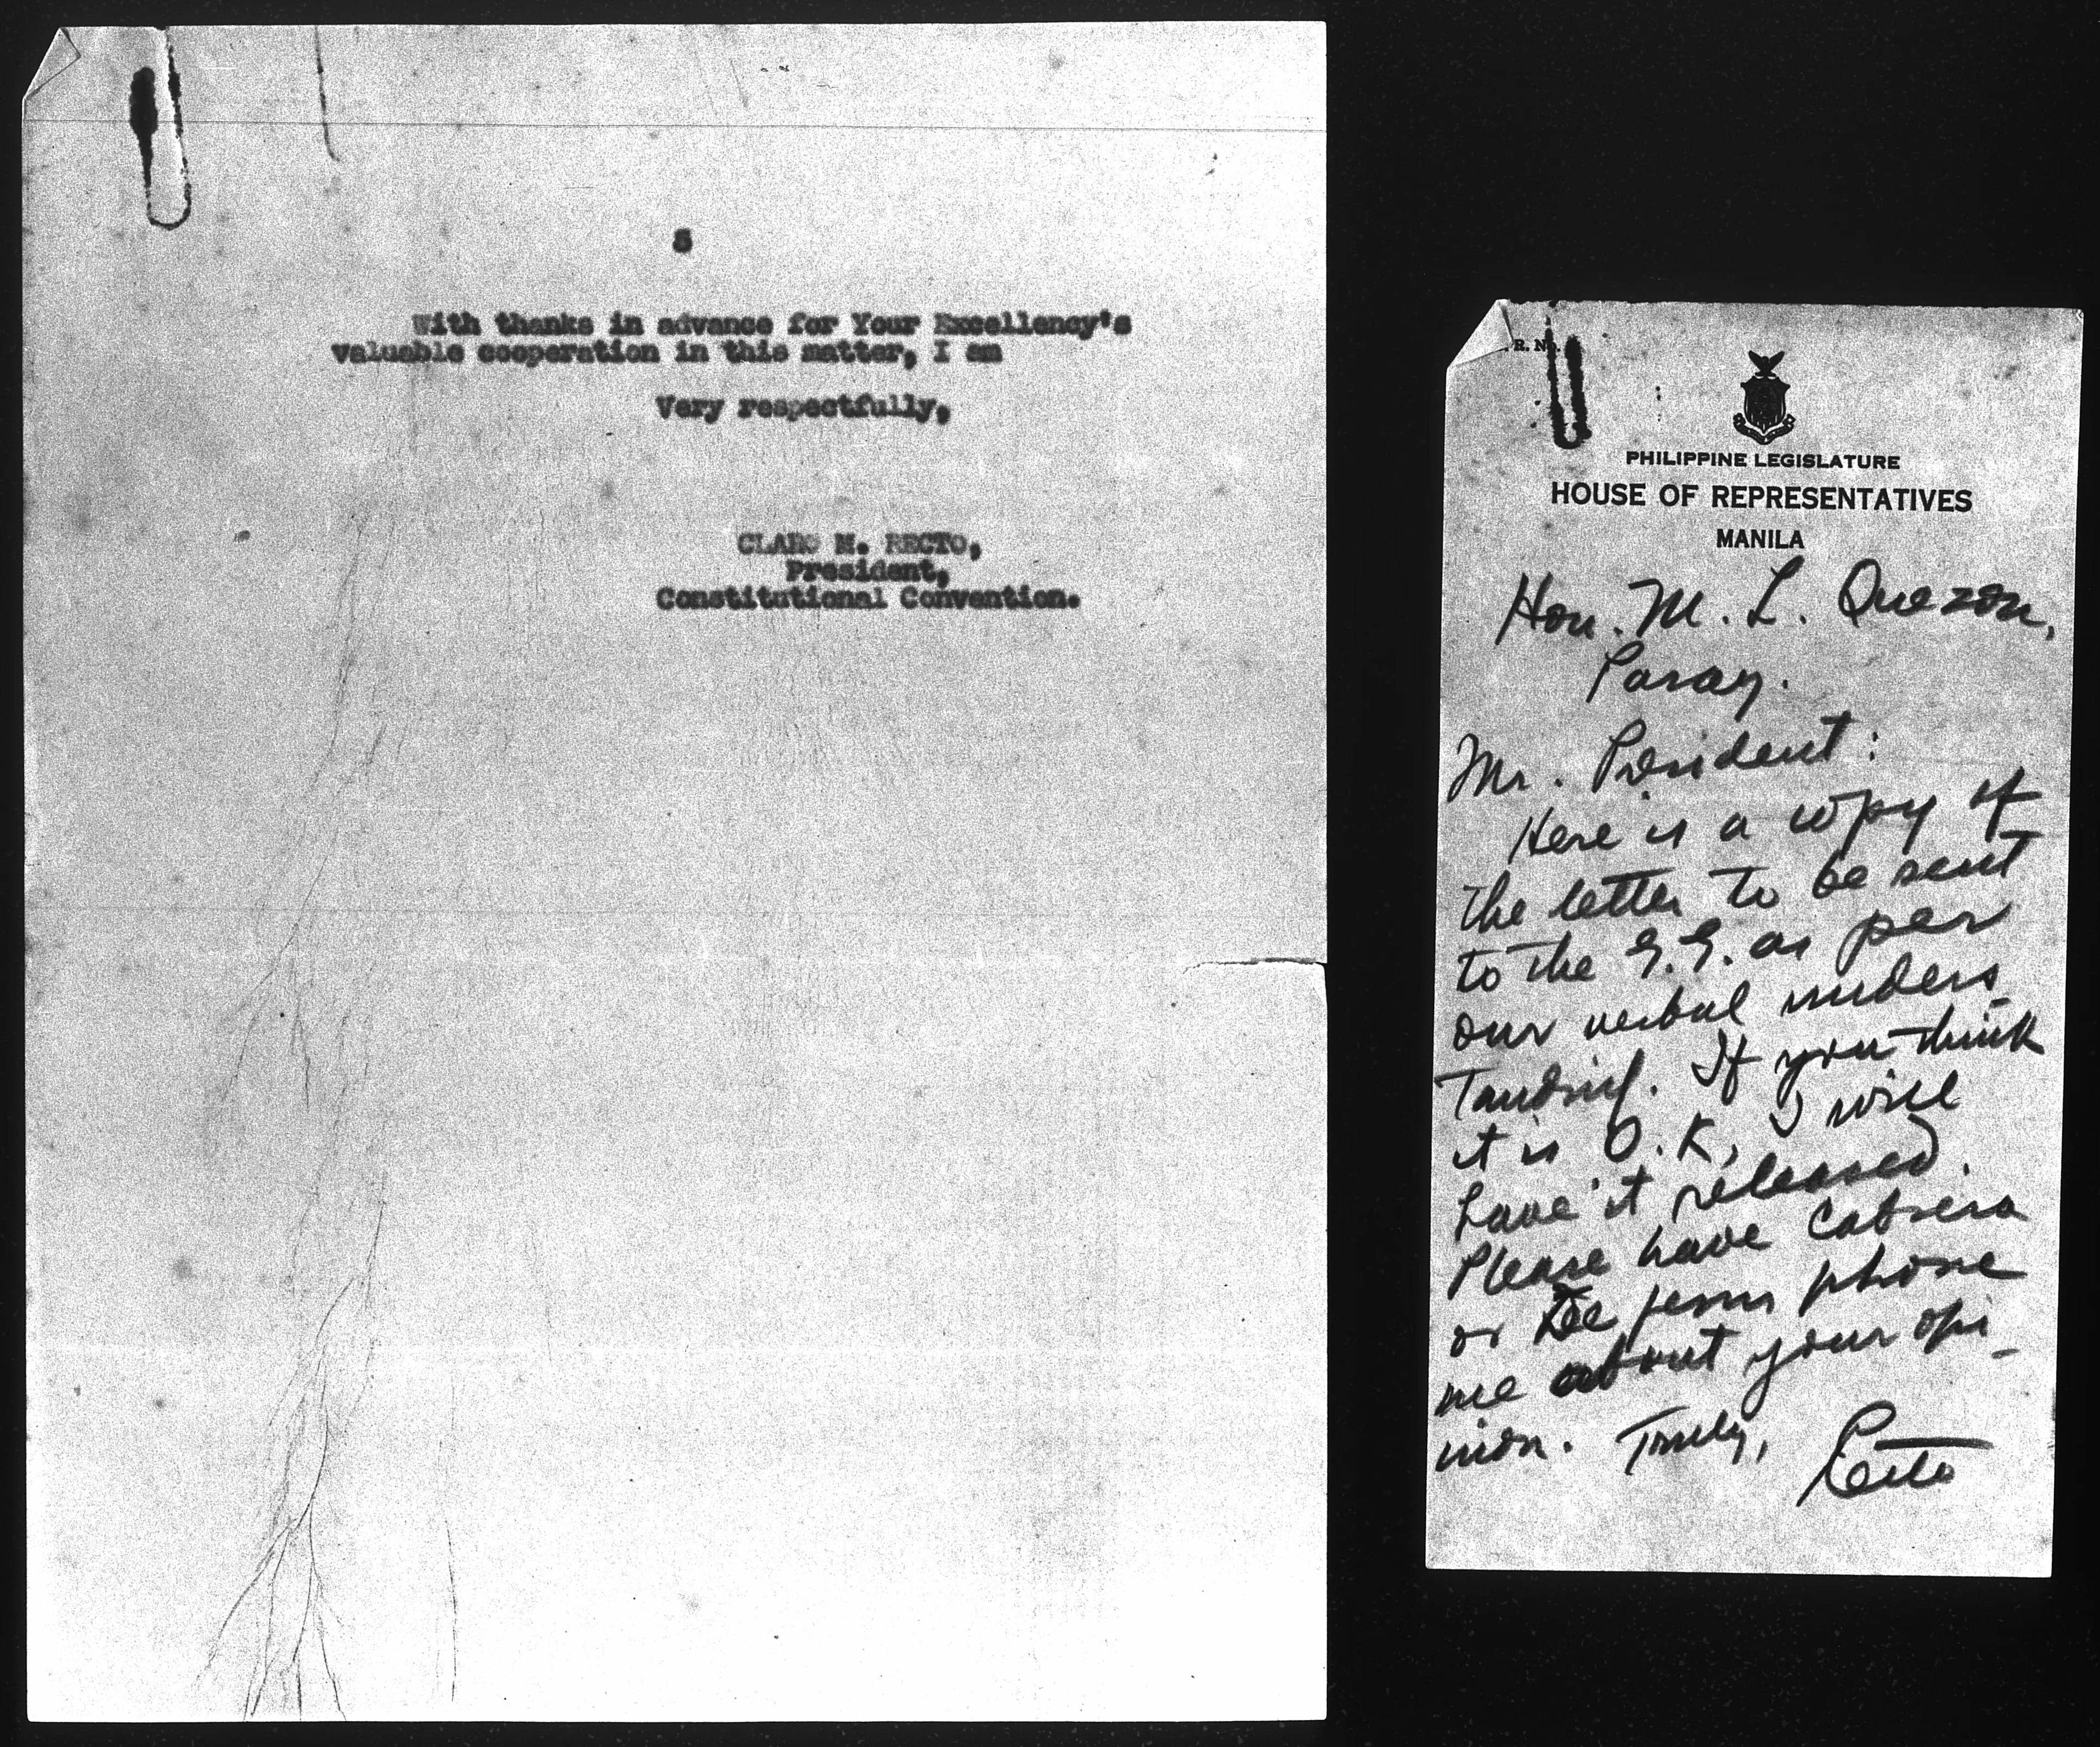 3
With thanks in advance for Your Excellency's
valuable cooperation in this matter, I am
Very respectfully,
CLARO M. RECTO,
President,
Constitutional Convention.
R. No.
PHILIPPINE LEGISLATURE
HOUSE OF REPRESENTATIVES
MANILA
Hon. M. L. Quezon,
Pasay.
Mr. President:
Here is a copy of
the letter to be sent
to the G.G. as per
our verbal unders-
tanding. If you think
it is O.K, I will
have it released.
Please have Cabrera
or De Jesus phone
me about your opi-
nion. Truly,
Recto